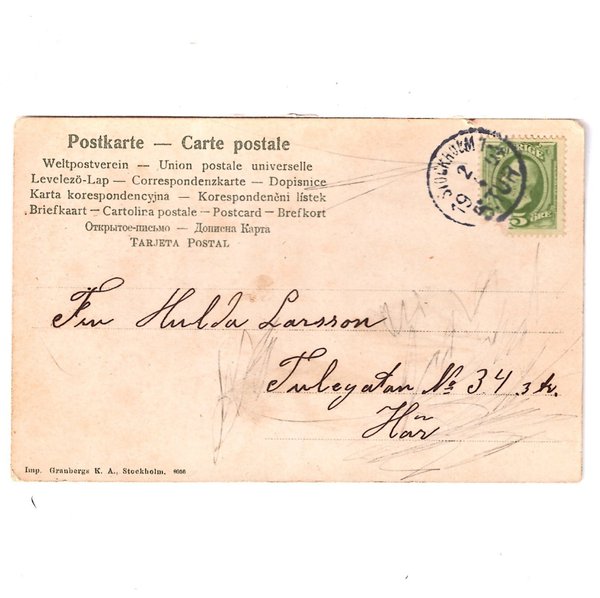 Postkarte — Carte postale
Weltpostverein — Union postale universelle
Levelező-Lap — Correspondenzkarte — Dopisnice
Karta korespondencyjna — Korespondenční lístek
Briefkaart — Cartolina postale — Postcard — Brefkort
Открытое-письмо — Дописна Карта
TARJETA POSTAL
STOCKHOLM 1
SVERIGE
5 ÖRE
Frn Hulda Larsson
Tulegatan No 34 3 tr.
Här
Imp. Granbergs K. A., Stockholm.